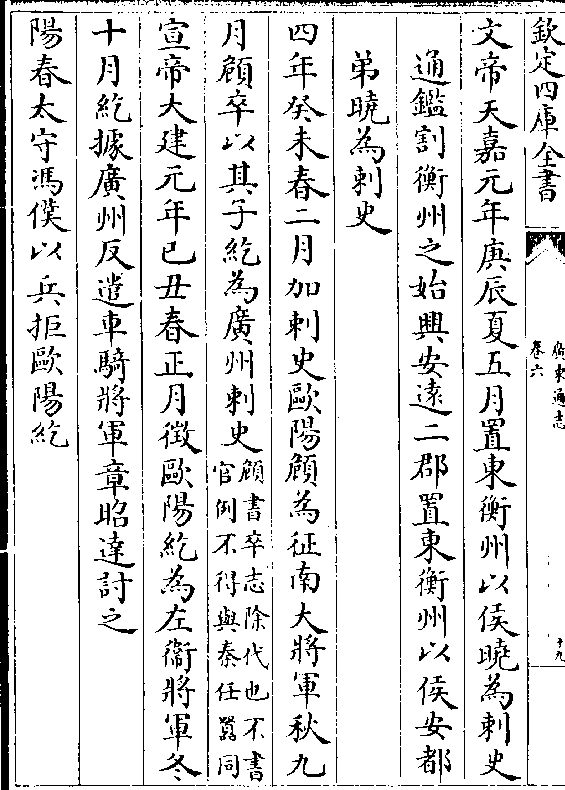 欽定四庫全書
廣東通志
卷六
十九
文帝天嘉元年庚辰夏五月置東衡州以侯曉為刺史
通鑑割衡州之始興安遠二郡置東衡州以侯安都
弟曉為刺史
四年癸未春二月加刺史歐陽頠為征南大將軍秋九
月頠卒以其子紇為廣州刺史頠書卒志除代也不書
官例不得與秦任嚣同
宣帝大建元年已丑春正月徵歐陽紇為左衞將軍冬
十月紇據廣州反遣車騎將軍章昭達討之
陽春太守馮僕以兵拒歐陽紇